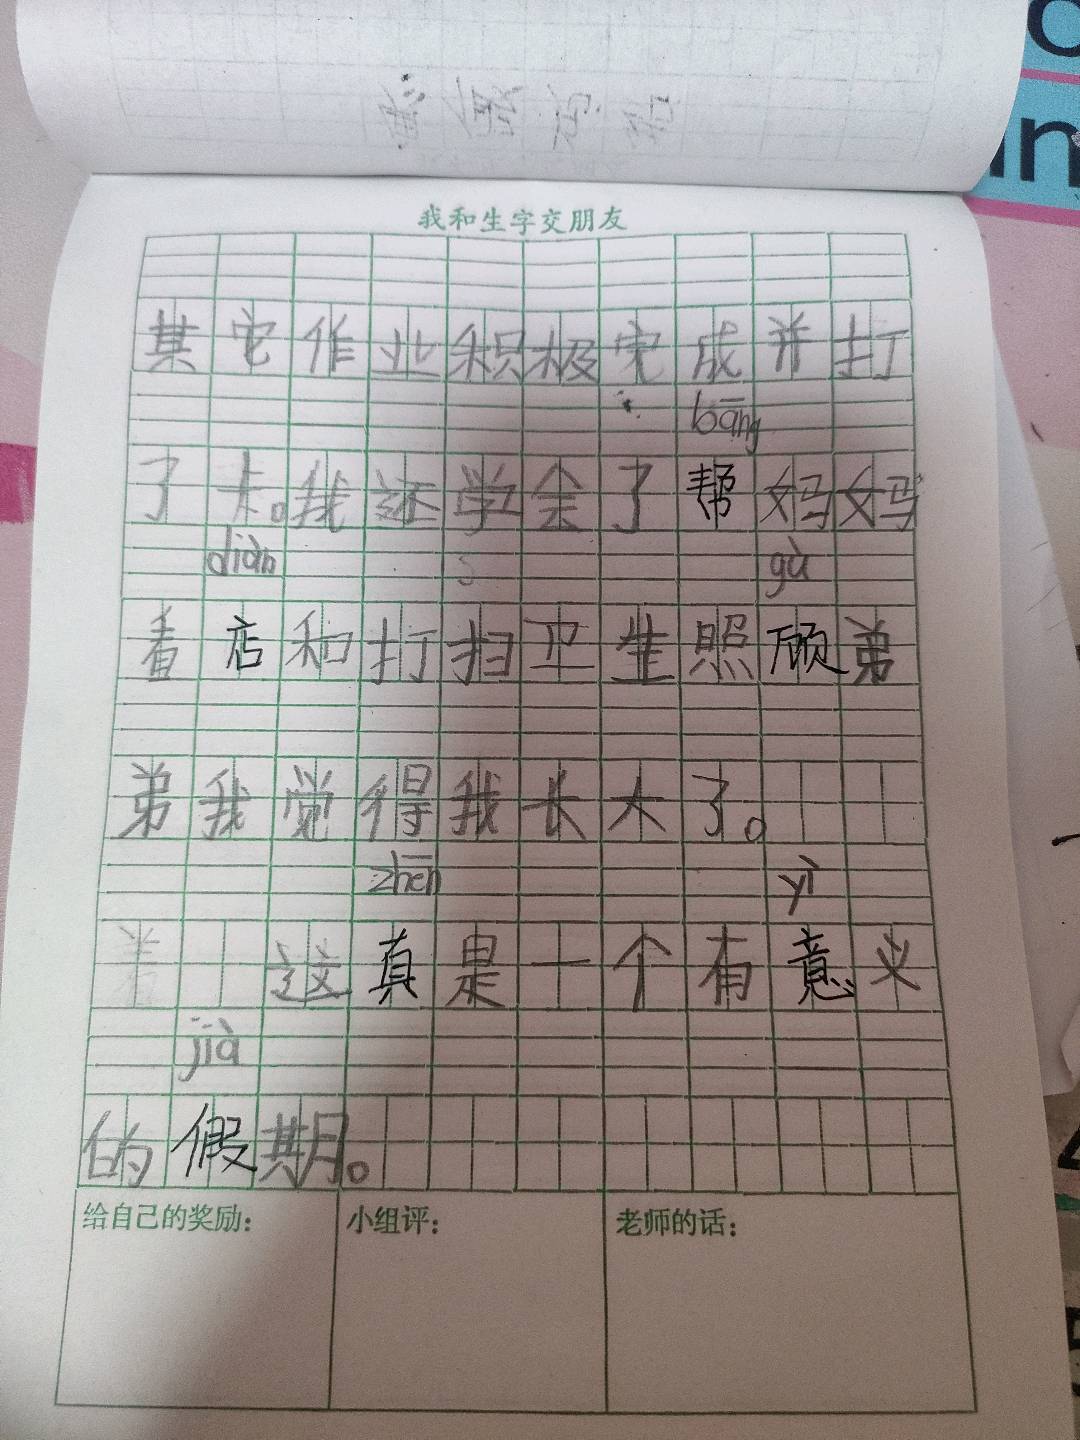 我和生字交朋友
其它作业积极完成并打
bāng
了卡。我还学会了帮妈妈
diàn gù
看店和打扫卫生照顾弟
弟我觉得我长大了。
zhēn yì
这真是一个有意义
jià
的假期。
给自己的奖励： 小组评： 老师的话：